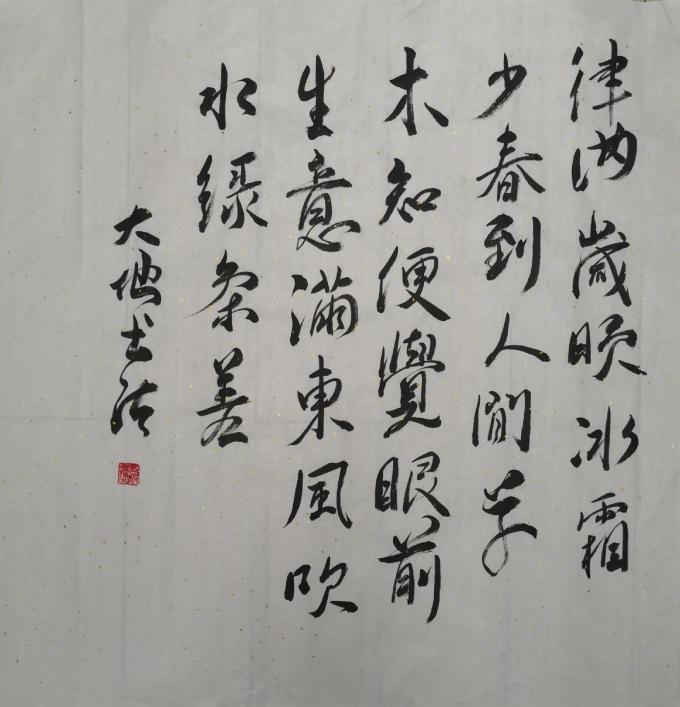 律回歲晚冰霜
少春到人間草
木知便覺眼前
生意滿東風吹
水綠參差
大地书法